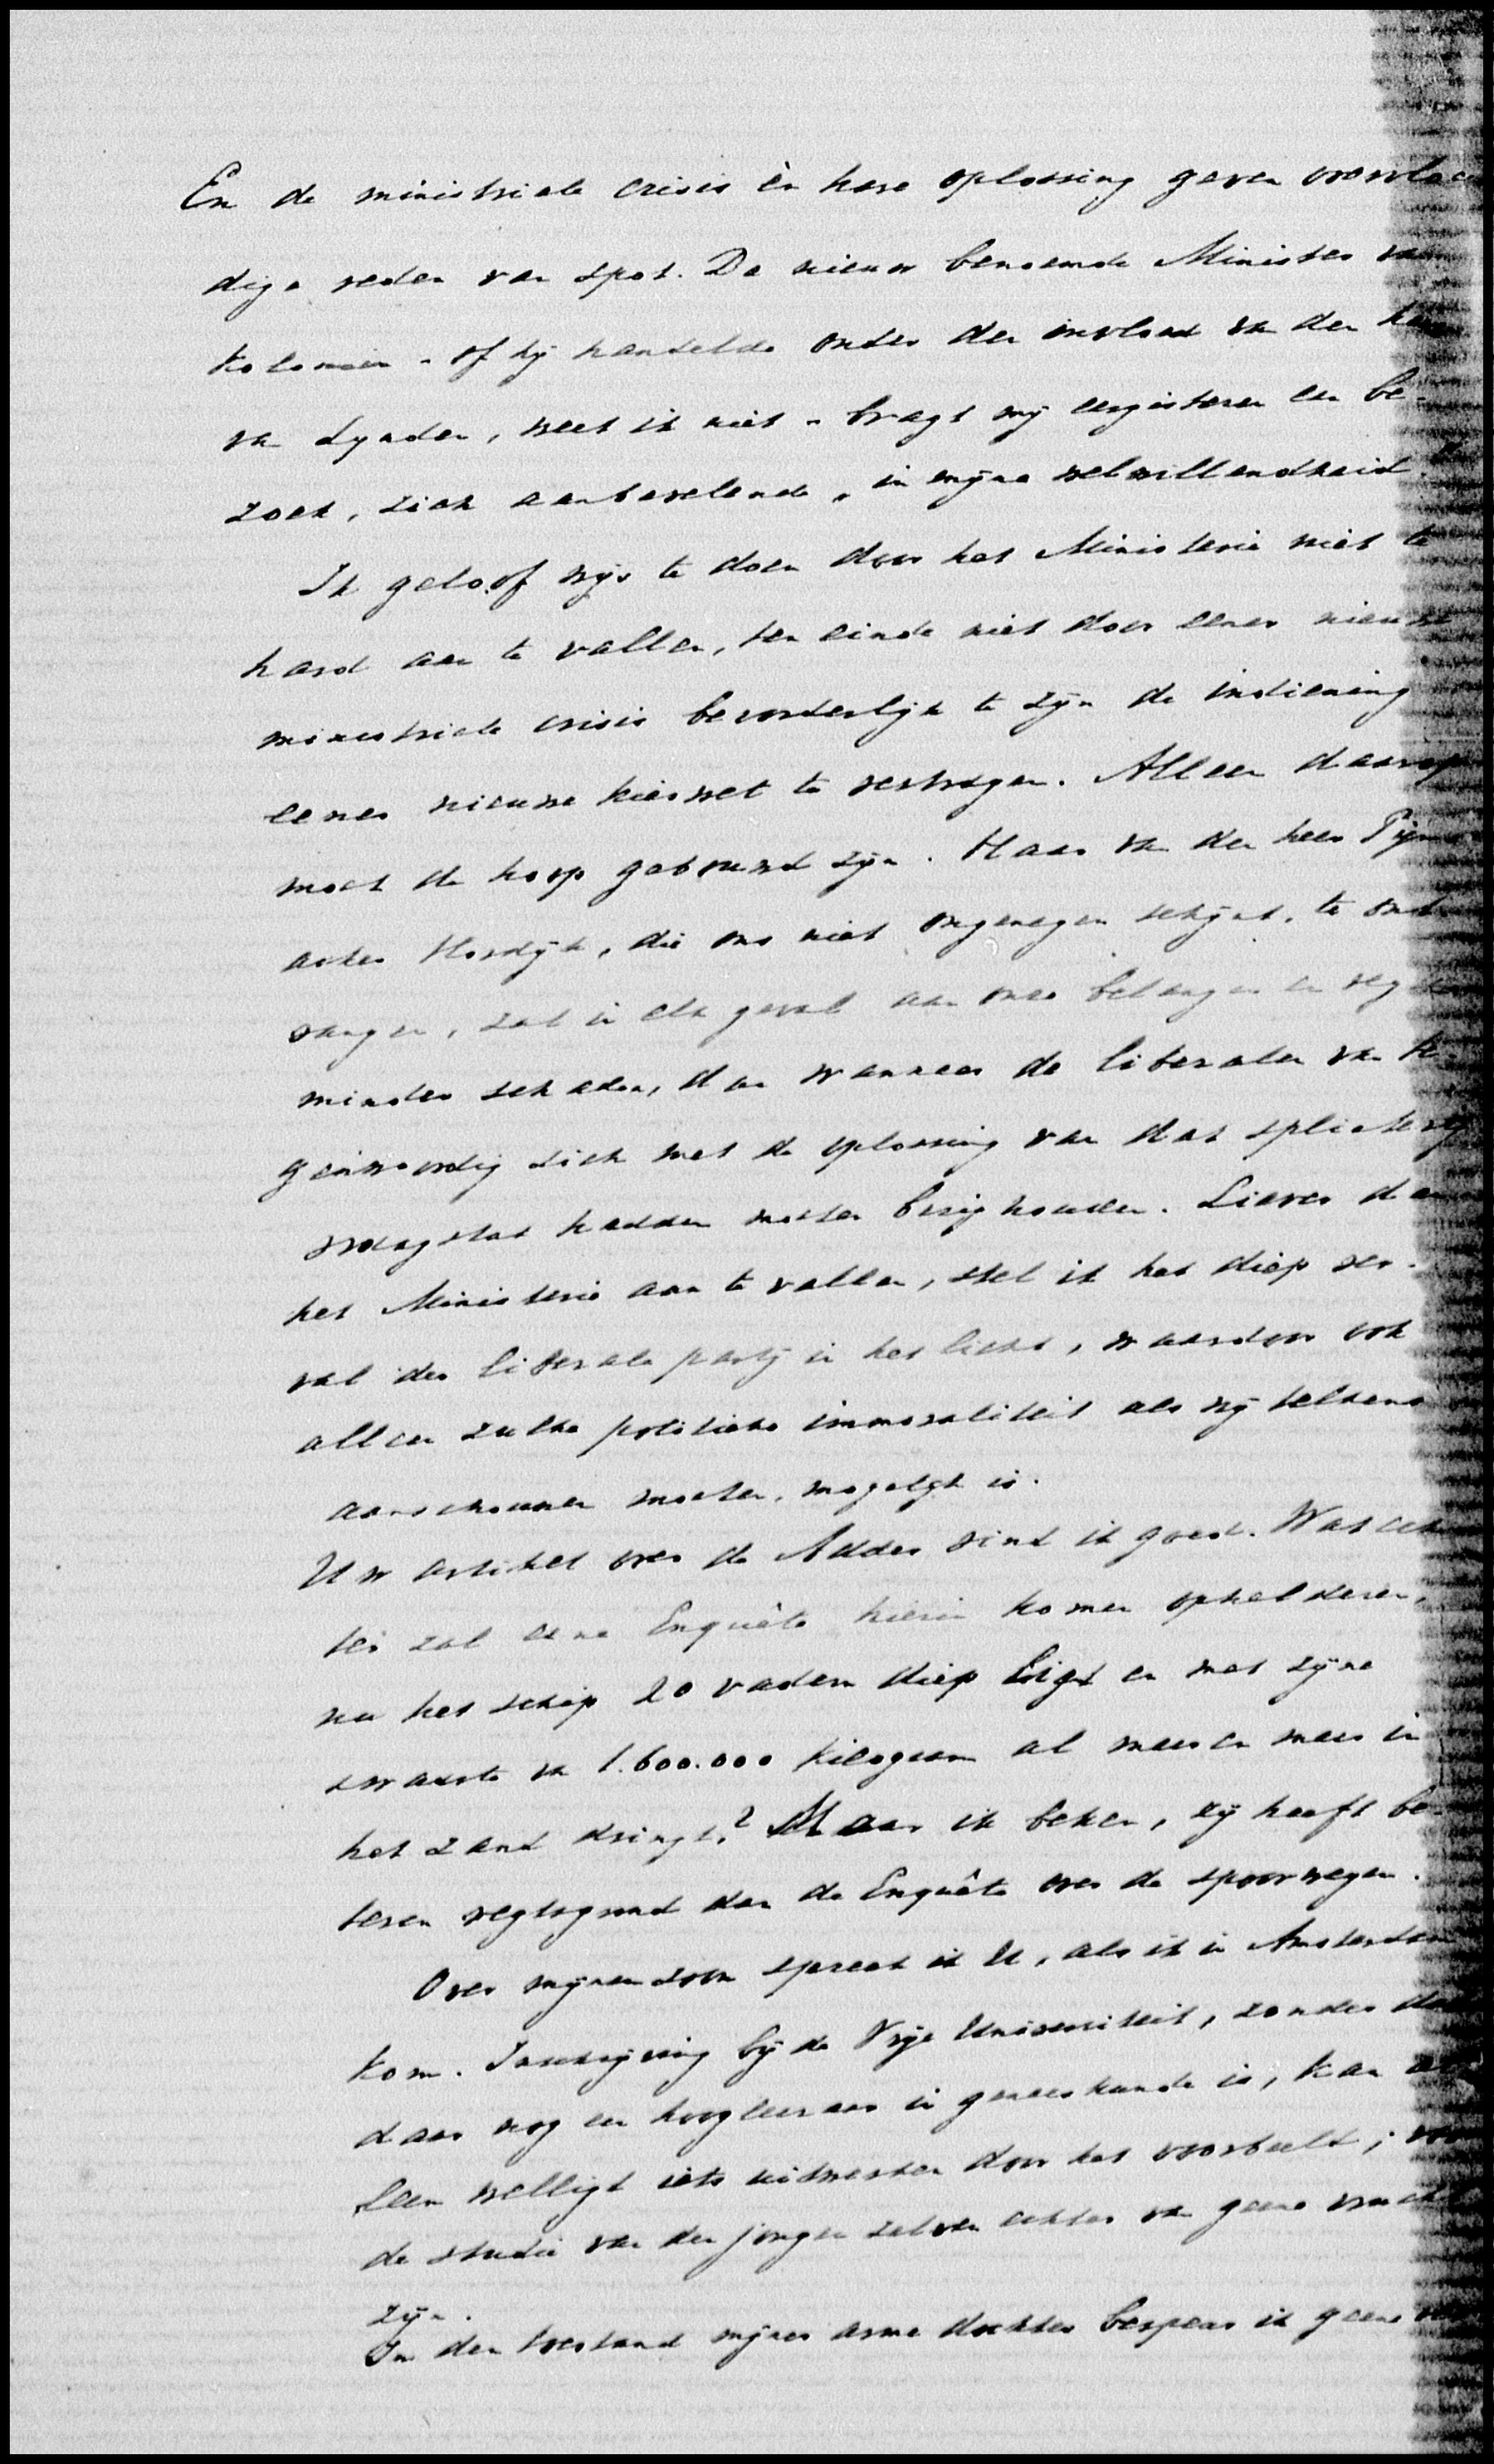 En de ministriele crisis èn hare oplossing geven overvloe
dige reden van spot. De nieuw benoemde Minister van
Kolonien - of hij handelde onder den invloed van den heer
van Lynden, weet ik niet - bragt mij eergisteren een be-
zoek, zich aanbevelende „in mijne welwillendheid."
Ik geloof wijs te doen door het Ministerie niet te
hard aan te vallen, ten einde niet door eener nieuwe
ministriele crisis bevorderlijk te zijn de indiening
eener nieuwe kieswet te vertragen. Alleen daarop
moet de hoop gebouwd zijn. Maar van den heer Pijn
acker Hordijk, die ons niet ongenegen schijnt te ont
vangen, zal in elk geval aan onze belangen en regten
minder schaden, dan wanneer de liberalen van te-
genwoordig zich met de oplossing van dat
vraagstuk hadden moeten bezig houden. Liever dan
het Ministerie aan te vallen, stel ik het diep ver-
val der liberale partij in het licht, waardoor ook
alleen zulke politieke immoraliteit als wij telkens
aanschouwen moeten, mogelijk is.
Uw artikel over de Adder vind ik goed. Wat ech
ter zal eene Enquête hierin komen ophelderen,
nu het schip 20 vadem diep ligt en met zijne
zwaarte van 1.600.000 kilogram al meer en meer in
het zand dringt? Maar ik beken, zij heeft be-
teren regtsgrond dan de Enquête over de spoorwegen.
Over mijnen zoon spreek ik U, als ik in Amsterdam
kom. Inschrijving bij de Vrije Universiteit, zonder dat
daar nog een hoogleeraar in geneeskunde is, kan al
leen welligt iets uitwerken door het voorbeeld; voor
de studie van den jongen zelven echter van geene vrucht
zijn.
In den toestand mijner arme dochter bespeur ik geene